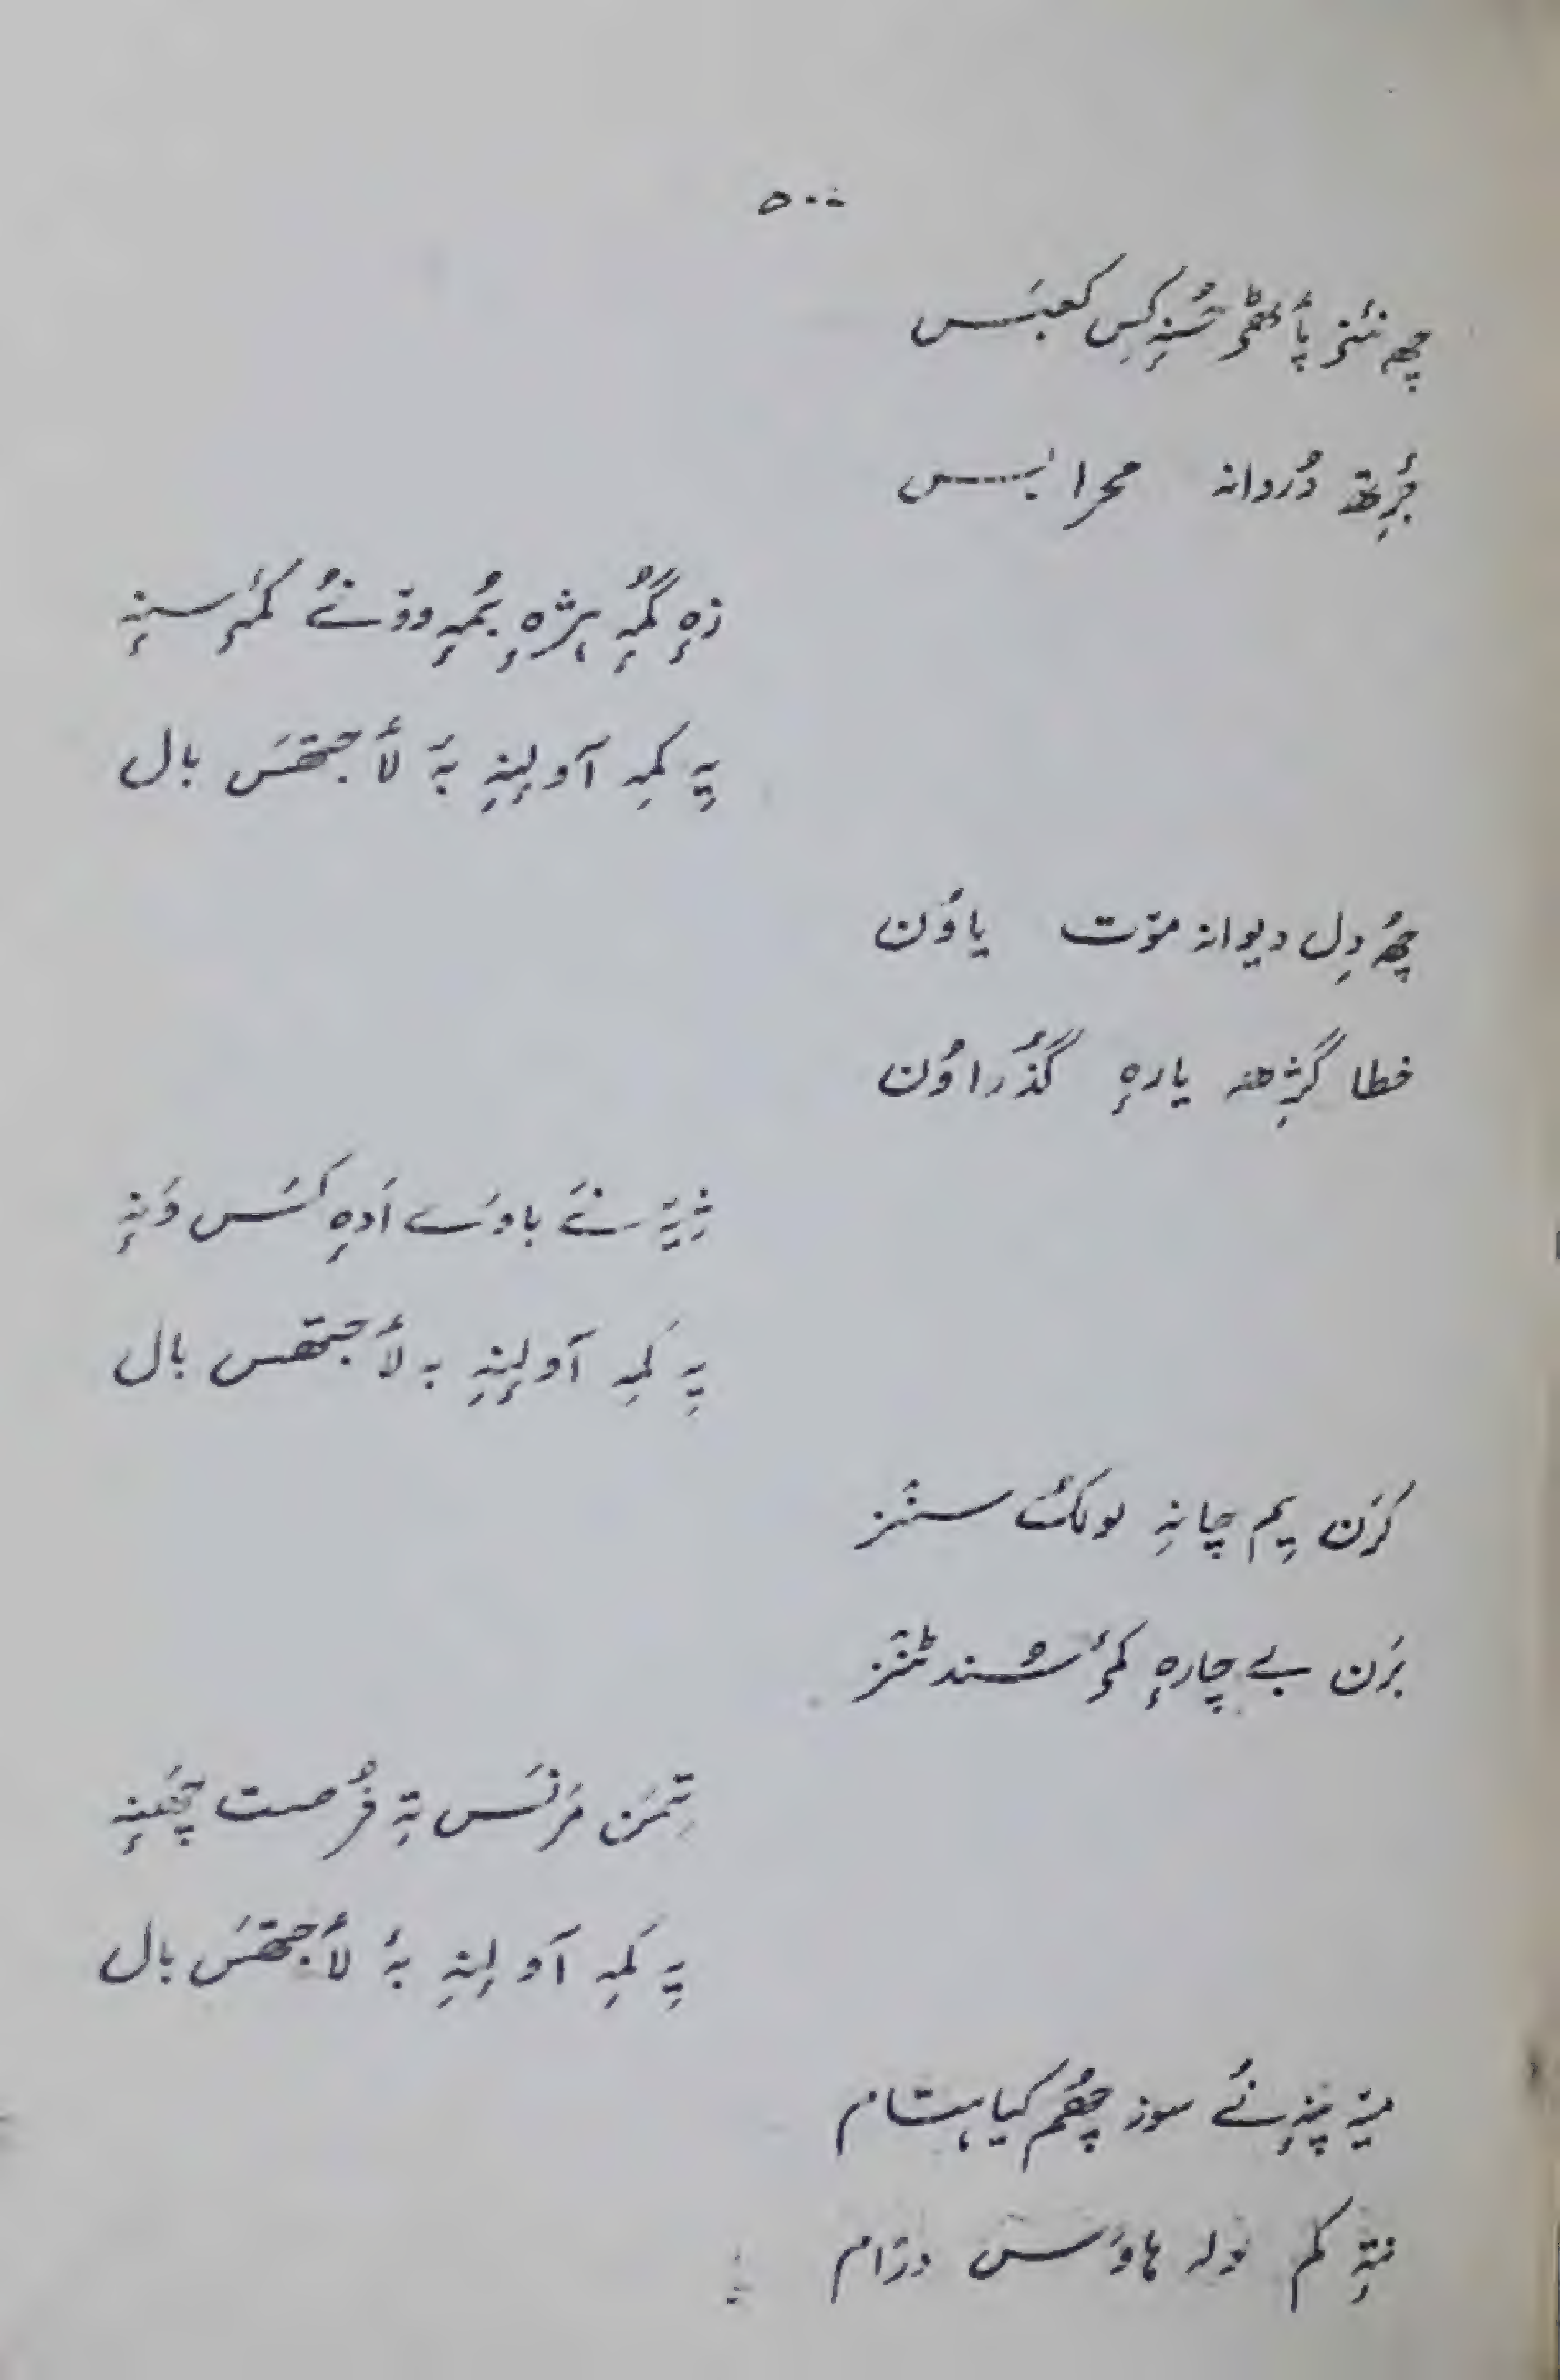 چھِ نٔنز پأٹھۍ حُسنہٕ کِس کعبَس
بٔرِتھ دُردانہ محرابس
زہٕ گُمہٕ پٮ۪ژہٕ بُمہٕ ووٚنُے کٔمۍ سنہٕ
یہِ کمہِ آولِنہِ بہٕ لٲجتھَس بال
چھُ دِل دیوانہ موٚت یاوُن
خطا گژِھنہ یارہٕ گُذراوُن
نَے باوَے اَدہٕ کَس وَنہٕ
یہِ کَمہِ آولِنہِ بہ لٲجتھس بال
کرَن یِم چانہِ لوٗلٕکۍ سٔنز
بَرَن بے چارہٕ کٔمۍ سُند تٔنز
تِمَن مَرنَس تہِ فُرصت چھَنہٕ
یہِ کَمہِ آولِنہِ بہٕ لٲجتھَس بال
مٮ۪ہ پنہٕ نُے سوز چھُم کیا ہتام
نتہٕ کم ولہ ہاوَس درٛام